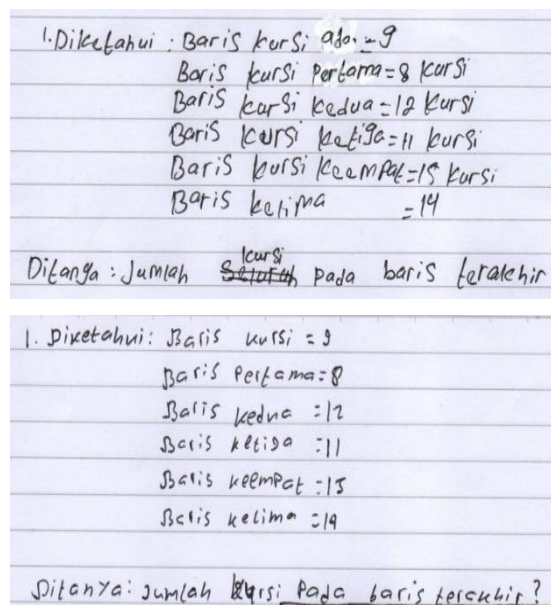 1. Diketahui : Baris kursi ada = 9
Baris kursi pertama = 8 kursi
Baris kursi kedua = 12 kursi
Baris kursi ketiga = 11 kursi
Baris kursi keempat = 15 kursi
Baris kelima = 14
kursi
Ditanya : Jumlah pada baris terakhir
1. Diketahui : Baris kursi = 9
Baris Pertama = 8
Baris kedua = 12
Baris ketiga = 11
Baris keempat = 15
Baris kelima = 14
Ditanya : Jumlah kursi pada baris terakhir ?